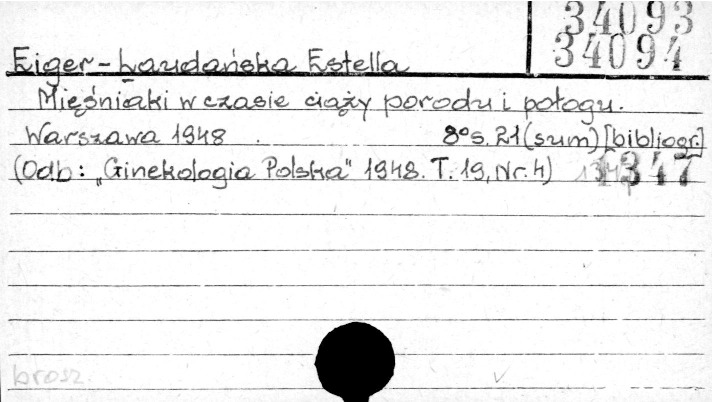 34093
34094
Eiger-Łaudańska Estella
Mięśniaki w czasie ciąży porodu i połogu.
Warszawa 1948 8° s. 21 (sum) [bibliogr.]
(Odb: „Ginekologia Polska" 1948. T. 19, Nr. 4) 1347
brosz.